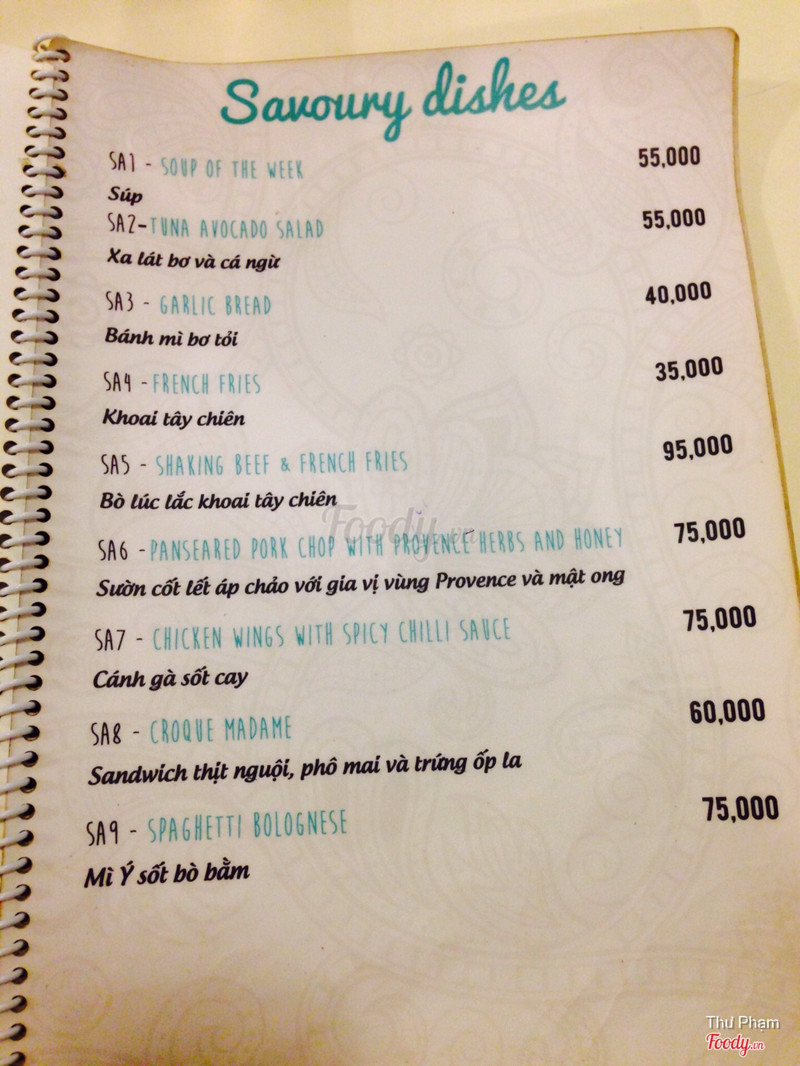 Savoury dishes
SA1 - SOUP OF THE WEEK 55,000
Súp
SA2-TUNA AVOCADO SALAD 55,000
Xa lát bơ và cá ngừ
SA3 - GARLIC BREAD 40,000
Bánh mì bơ tỏi
SA4 -FRENCH FRIES 35,000
Khoai tây chiên
SA5 - SHAKING BEEF & FRENCH FRIES 95,000
Bò lúc lắc khoai tây chiên
Foody.vn
SA6 -PANSEARED PORK CHOP WITH PROVENCE HERBS AND HONEY 75,000
Sườn cốt lết áp chảo với gia vị vùng Provence và mật ong
SA7 - CHICKEN WINGS WITH SPICY CHILLI SAUCE 75,000
Cánh gà sốt cay
SA8 - CROQUE MADAME 60,000
Sandwich thịt nguội, phô mai và trứng ốp la
SA9 - SPAGHETTI BOLOGNESE 75,000
Mì Ý sốt bò bằm
Thư Phạm
Foody.vn